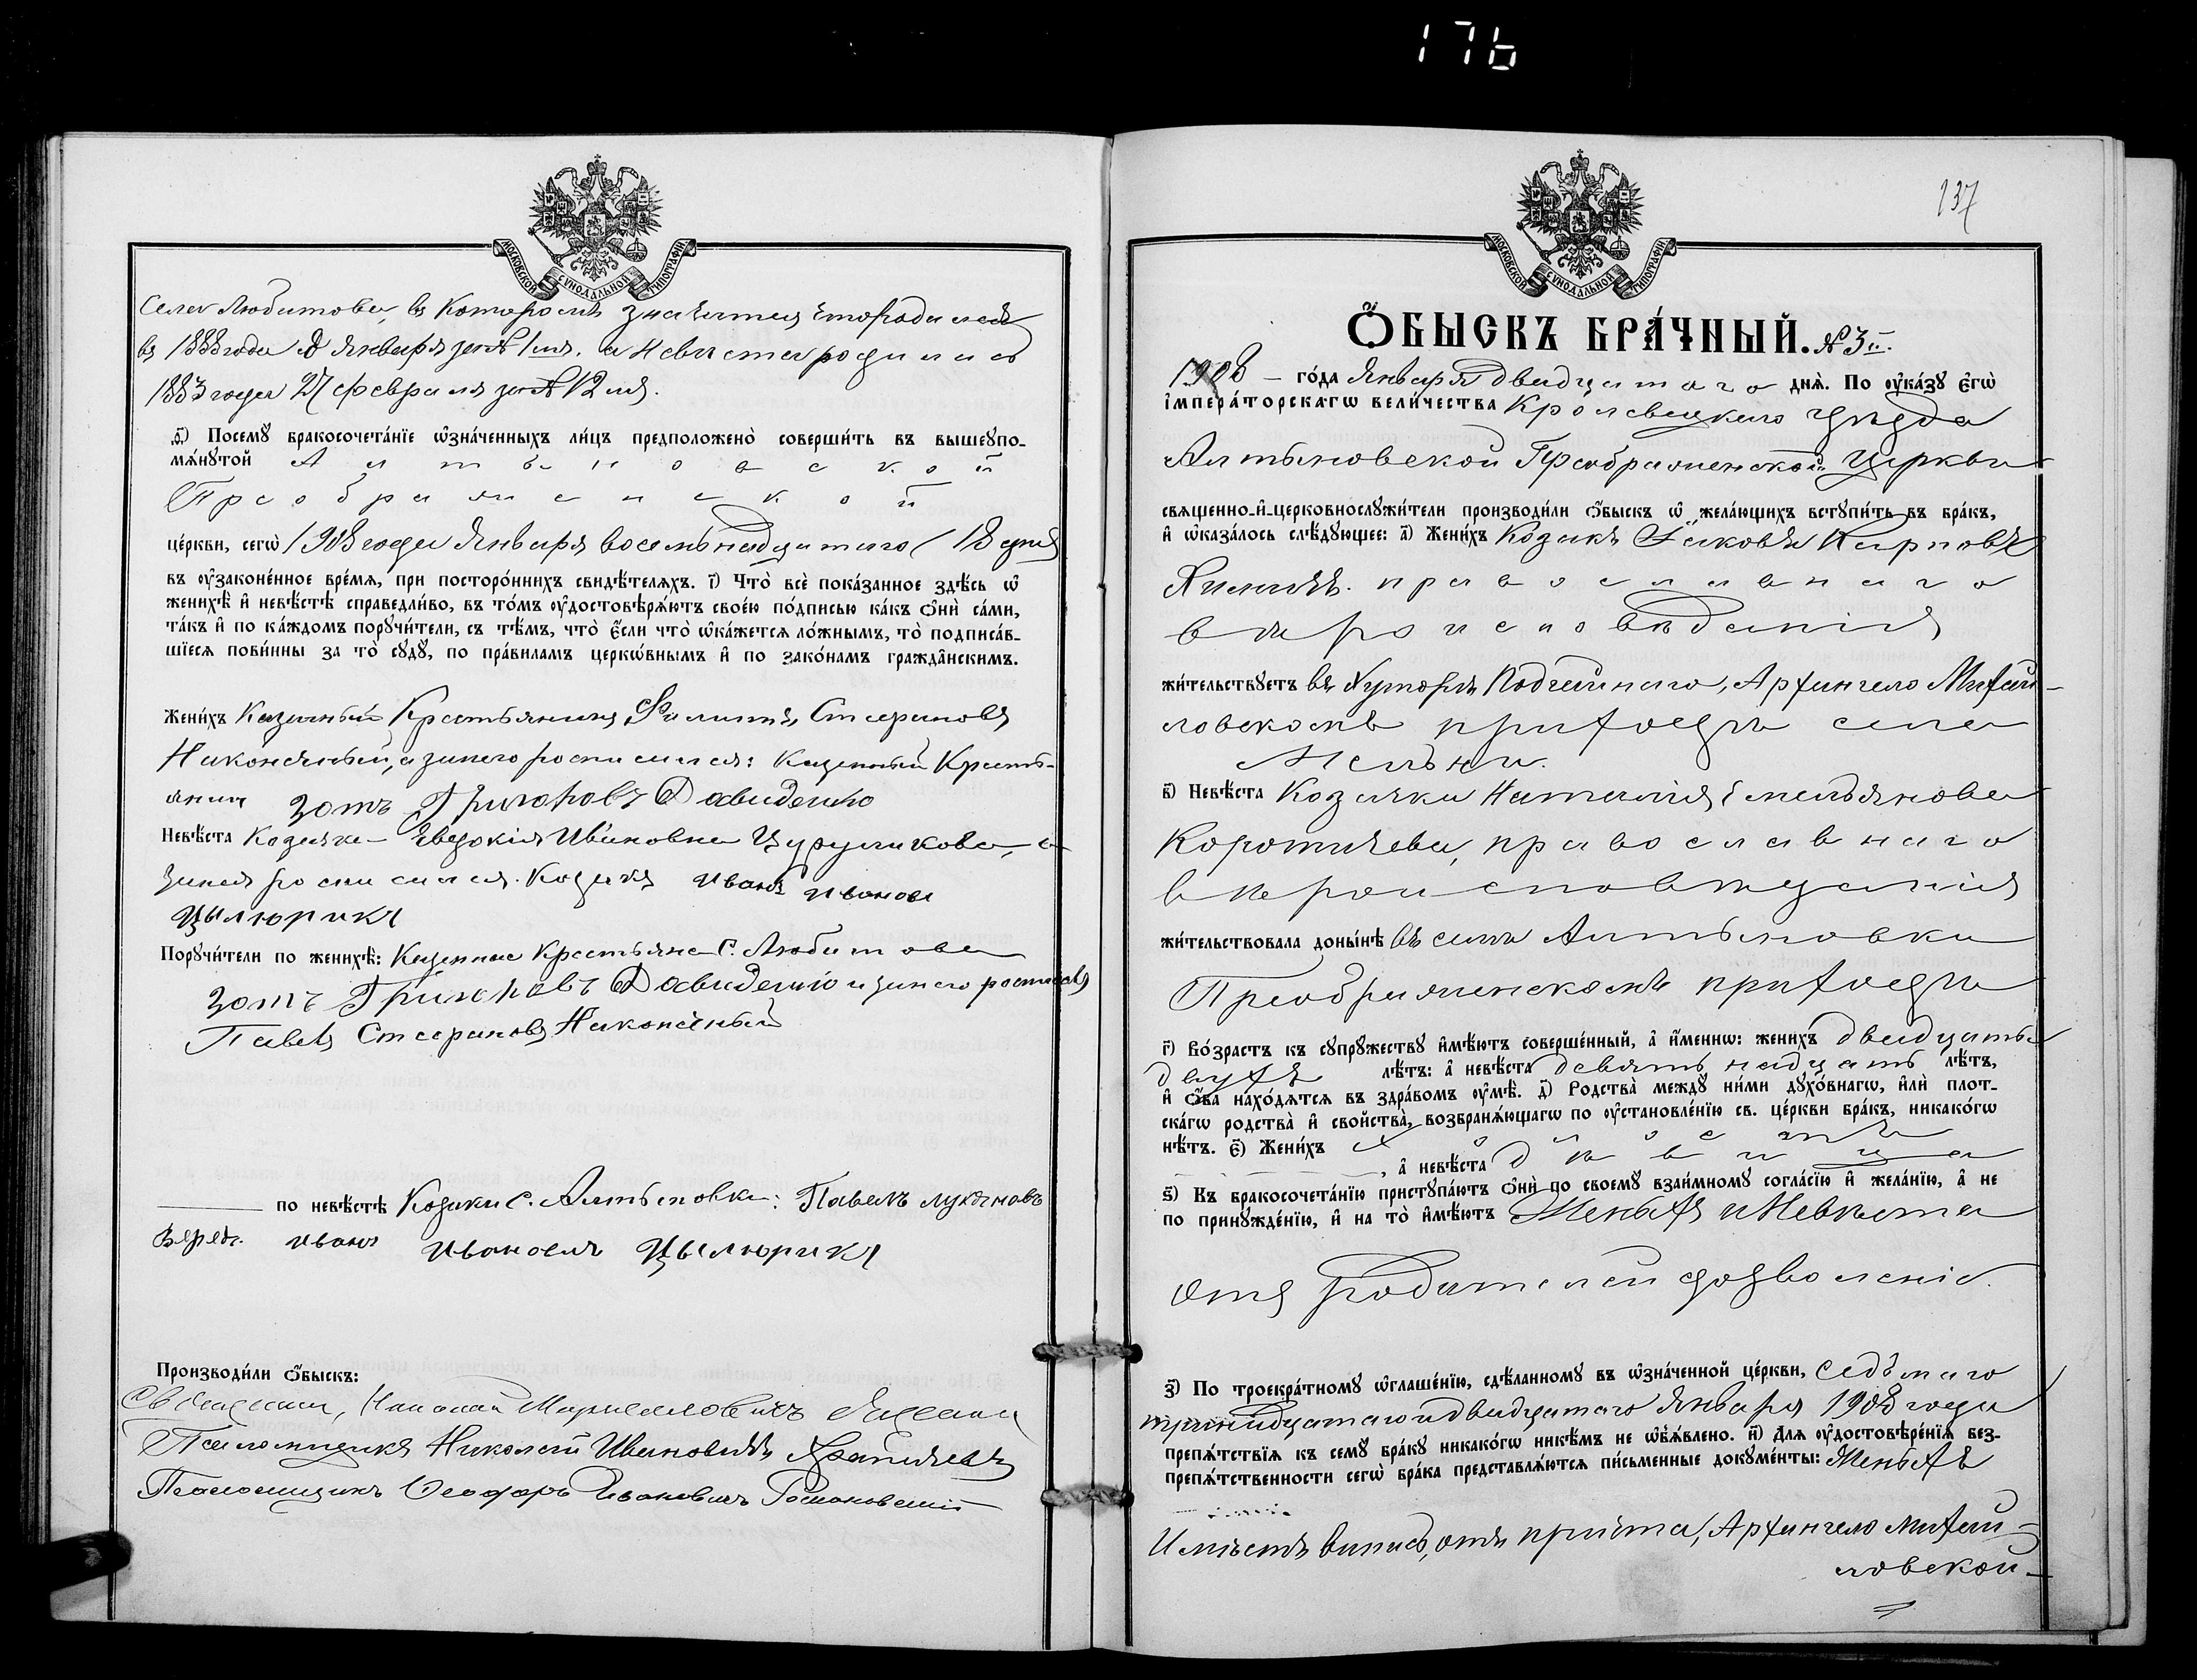 176
МОСКОВСКОЙ СѴНОДАЛЬНОЙ ТИПОГРАФІИ
Села Любитова, въ которомъ значится что родился
въ 1888 года 8 января за № 1мъ. а невѣста родилась
1883 года 27 февраля за № 12мъ.
ѳ҃) Посемꙋ̀ бракосочета́нїе ѡ҆зна́ченныхъ ли́цъ предположено̀ соверши́ть въ вышеꙋпо-
мѧ́нꙋтой Алтыновской
Преображенской
це́ркви, сегѡ̀ 1908 года Января восемьнадцатаго (18 дня
въ ᲂу҆законе́нное вре́мѧ, при посторо́ннихъ свидѣ́телѧхъ. і҃) Что̀ всѐ пока́занное здѣ́сь ѡ҆
женихѣ̀ и҆ невѣ́стѣ справедли́во, въ то́мъ ᲂу҆достовѣрѧ́ютъ свое́ю по́дписью ка́къ ѻ҆нѝ са́ми,
та́къ и҆ по ка́ждомъ порꙋчи́тели, съ тѣ́мъ, что̀ є҆́сли что̀ ѡ҆ка́жетсѧ ло́жнымъ, то̀ подписа́в-
шїесѧ пови́нны за то̀ сꙋдꙋ̀, по пра́виламъ церко́внымъ и҆ по зако́намъ гражда̂нскимъ.
Жени́хъ Казенный Крестьянинъ Филиппъ Стефановъ
Наконечный, а за него росписался: Казенный Кресть-
янинъ Зотъ Григоровъ Давиденко
Невѣ́ста Козачка Евдокія Иванова Цурупикова, а
за нея росписался. Козакъ Иванъ Ивановъ
Цылюрикъ
Порꙋчи́тели по женихѣ̀: Казенные Крестьяне С. Любитова
Зотъ Григоровъ Давиденко и за него росписался
Павелъ Стефановъ Наконечный
по невѣ́стѣ Козаки С. Алтыновки: Павелъ Лукяновъ
Иванъ Ивановичъ Цылюрикъ
Производи́ли ѻ҆́быскъ:
Псаломщикъ Николай Ивановичъ
Псаломщикъ Ѳеодоръ Ивановичъ Романовскій
137
МОСКОВСКОЙ СѴНОДАЛЬНОЙ ТИПОГРАФІИ
Ѻ҆́БЫСКЪ БРА́ЧНЫЙ. № 3й.
1908 – го́да Января двадцатаго днѧ̀. По ᲂу҆ка́зꙋ є҆гѡ̀
і҆мпера́торскагѡ вели́чества Кролевецкаго уѣзда
Алтыновской Преображенской Церкви
свѧщенно-и҆-церковнослꙋжи́тели производи́ли ѻ҆́быскъ ѡ҆ жела́ющихъ встꙋпи́ть въ бра́къ,
и҆ ѡ҆каза́лось слѣ́дꙋющее: а҃) Жени́хъ Козакъ Іаковъ Карповъ
православнаго
вѣроисповѣданія
жи́тельствꙋетъ въ Хуторѣ Подгайнаго, Архангело Михай-
ловскомъ приходѣ села
Мельни.
в҃) Невѣ́ста Козачка Наталія Емельянова
Коротичева, православнаго
вѣроисповѣданія
жи́тельствовала доны́нѣ въ селѣ Алтыновки
Преображенскомъ приходѣ
г҃) Во́зрастъ къ сꙋпрꙋ́жествꙋ и҆мѣ́ютъ соверше́нный, а҆ и҆́меннѡ: жени́хъ двадцать
двухъ лѣ́тъ: а҆ невѣ́ста девятьнадцать лѣ́тъ,
и҆ ѻ҆́ба нахо́дѧтсѧ въ здра́вомъ ᲂу҆мѣ̀. д҃) Родства̀ междꙋ̀ ни́ми дꙋхо́внагѡ, и҆лѝ плот-
ска́гѡ родства̀ и҆ сво́йства̀, возбранѧ́ющагѡ по ᲂу҆становле́нїю св. це́ркви бра́къ, никако́гѡ
нѣ́тъ. є҃) Жени́хъ холостъ
, а҆ невѣ́ста дѣвица
ѕ҃) Къ бракосочета́нїю пристꙋпа́ютъ ѻ҆нѝ по своемꙋ̀ взаи́мномꙋ согла́сїю и҆ жела́нїю, а҆ не
по принꙋжде́нїю, и҆ на то̀ и҆мѣ́ютъ Женихъ и Невѣста
отъ родителей дозволеніе.
з҃) По троекра́тномꙋ ѡ҆глаше́нїю, сдѣ́ланномꙋ въ ѡ҆зна́ченной це́ркви, седьмаго
тринадцатаго и двадцатаго Января 1908 года
препѧ́тствїѧ къ семꙋ̀ бра́кꙋ никако́гѡ никѣ́мъ не ѡ҆б̾ѧ́влено. и҃) Длѧ ᲂу҆достовѣре́нїѧ без-
препѧ́тственности сегѡ̀ бра́ка представлѧ́ютсѧ пи́сьменные докꙋме́нты: Женихъ
Имѣетъ выпись, отъ причта, Архангело Михай-
ловской -